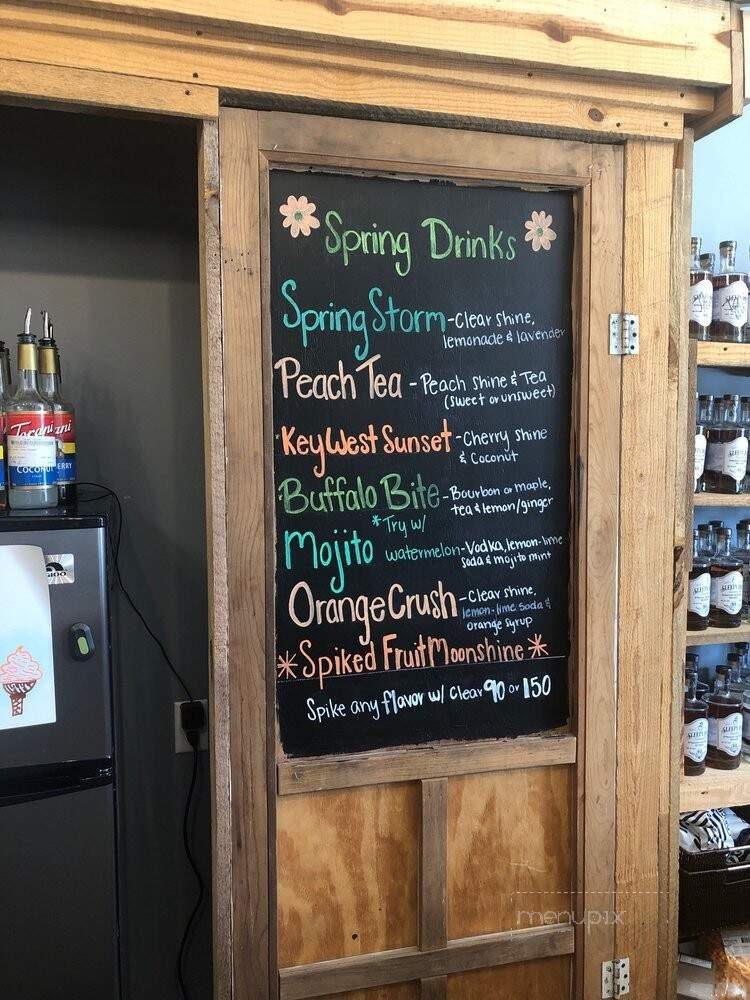 Spring Drinks
Spring Storm - Clear shine,
lemonade & lavender
Peach Tea - Peach shine & Tea
(sweet or unsweet)
*Key West Sunset - Cherry Shine
& Coconut
Buffalo Bite - Bourbon or maple,
tea & lemon/ginger
*Try w/
Mojito watermelon - Vodka, lemon-lime
soda & mojito mint
Orange Crush - Clear shine,
lemon-lime soda &
orange syrup
*Spiked Fruit Moonshine*
Spike any flavor w/ Clear 90 or 150
Torani
COCONUT
menupix